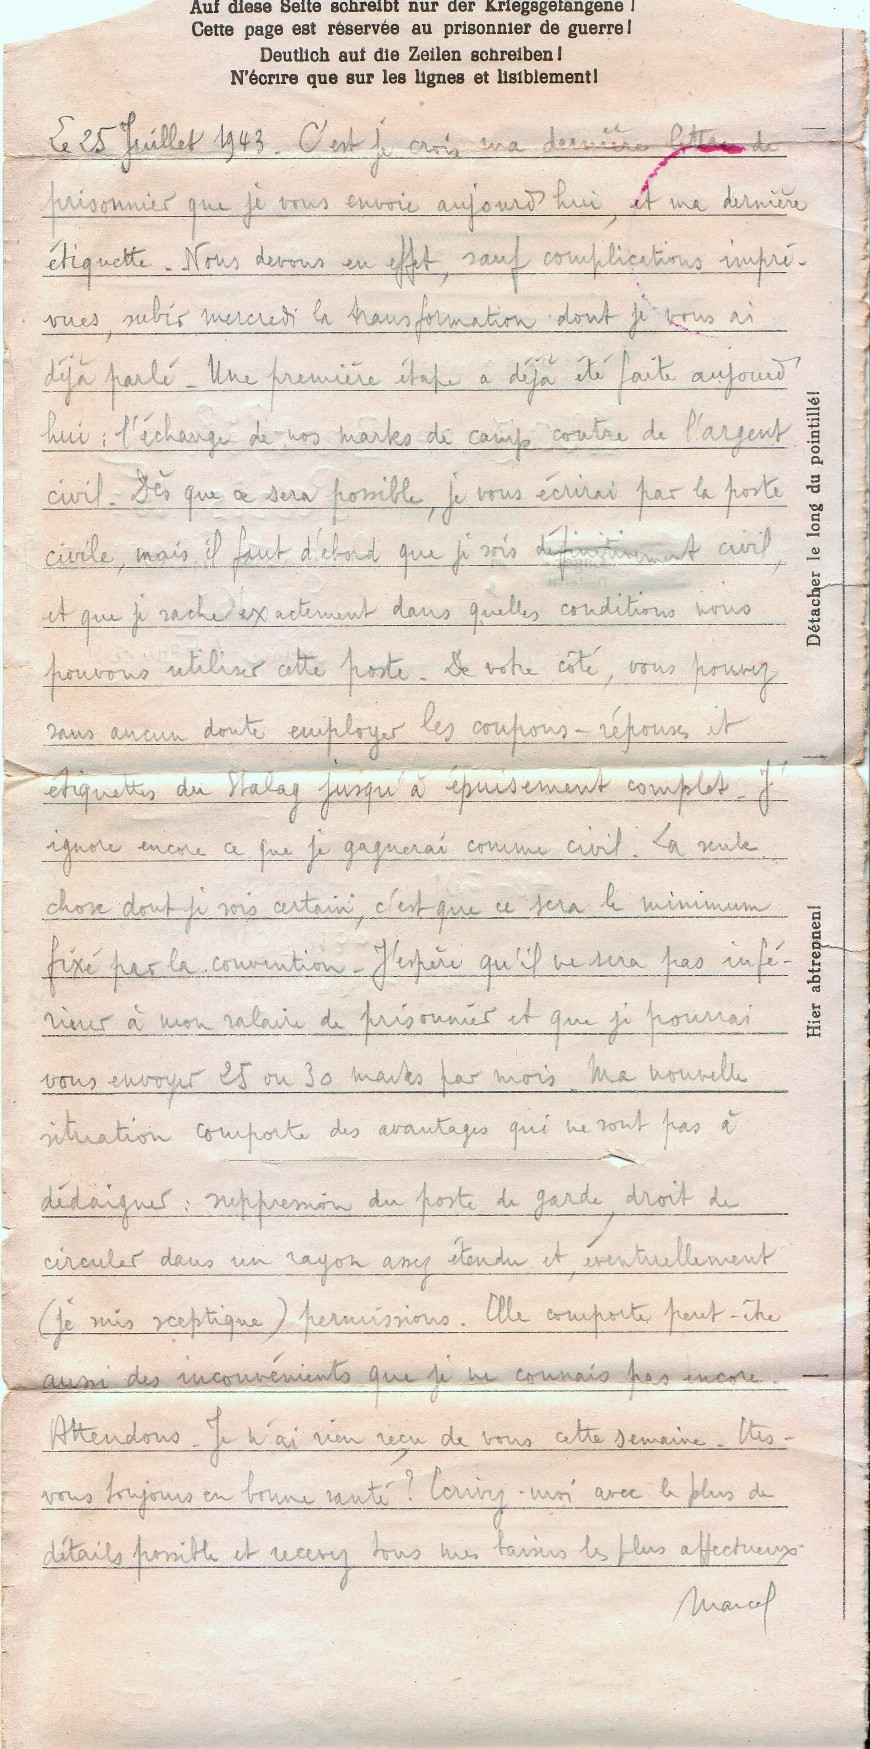 Auf diese Seite schreibt nur der Kriegsgefangene!
Cette page est réservée au prisonnier de guerre!
Deutlich auf die Zeilen schreiben!
N'écrire que sur les lignes et lisiblement!
Le 25 Juillet 1943. C'est je crois ma dernière lettre de
prisonnier que je vous envoie aujourd'hui, et ma dernière
étiquette. Nous devons en effet, sauf complications impré-
vues, subir mercredi la transformation dont je vous ai
déjà parlé. Une première étape a déjà été faite aujourd'
hui : l'échange de nos marks de camp contre de l'argent
civil. Dès que ce sera possible, je vous écrirai par la poste
civile, mais il faut d'abord que je sois définitivement civil,
et que je sache exactement dans quelles conditions nous
pouvons utiliser cette poste. De votre côté, vous pouvez
sans aucun doute employer les coupons-réponses et
étiquettes du Stalag jusqu'à épuisement complet. J'
ignore encore ce que je gagnerai comme civil. La seule
chose dont je sois certain, c'est que ce sera le minimum
fixé par la convention. J'espère qu'il ne sera pas infé-
rieur à mon salaire de prisonnier et que je pourrai
vous envoyer 25 ou 30 marks par mois. Ma nouvelle
situation comporte des avantages qui ne sont pas à
dédaigner : suppression du poste de garde, droit de
circuler dans un rayon assez étendu et, éventuellement
(je suis sceptique) permissions. Elle comporte peut-être
aussi des inconvénients que je ne connais pas encore.
Attendons. Je n'ai rien reçu de vous cette semaine. Etes-
vous toujours en bonne santé? Ecrivez-moi avec le plus de
détails possible et recevez tous mes baisers les plus affectueux.
Marcel
Détacher le long du pointillé!
Hier abtrennen!